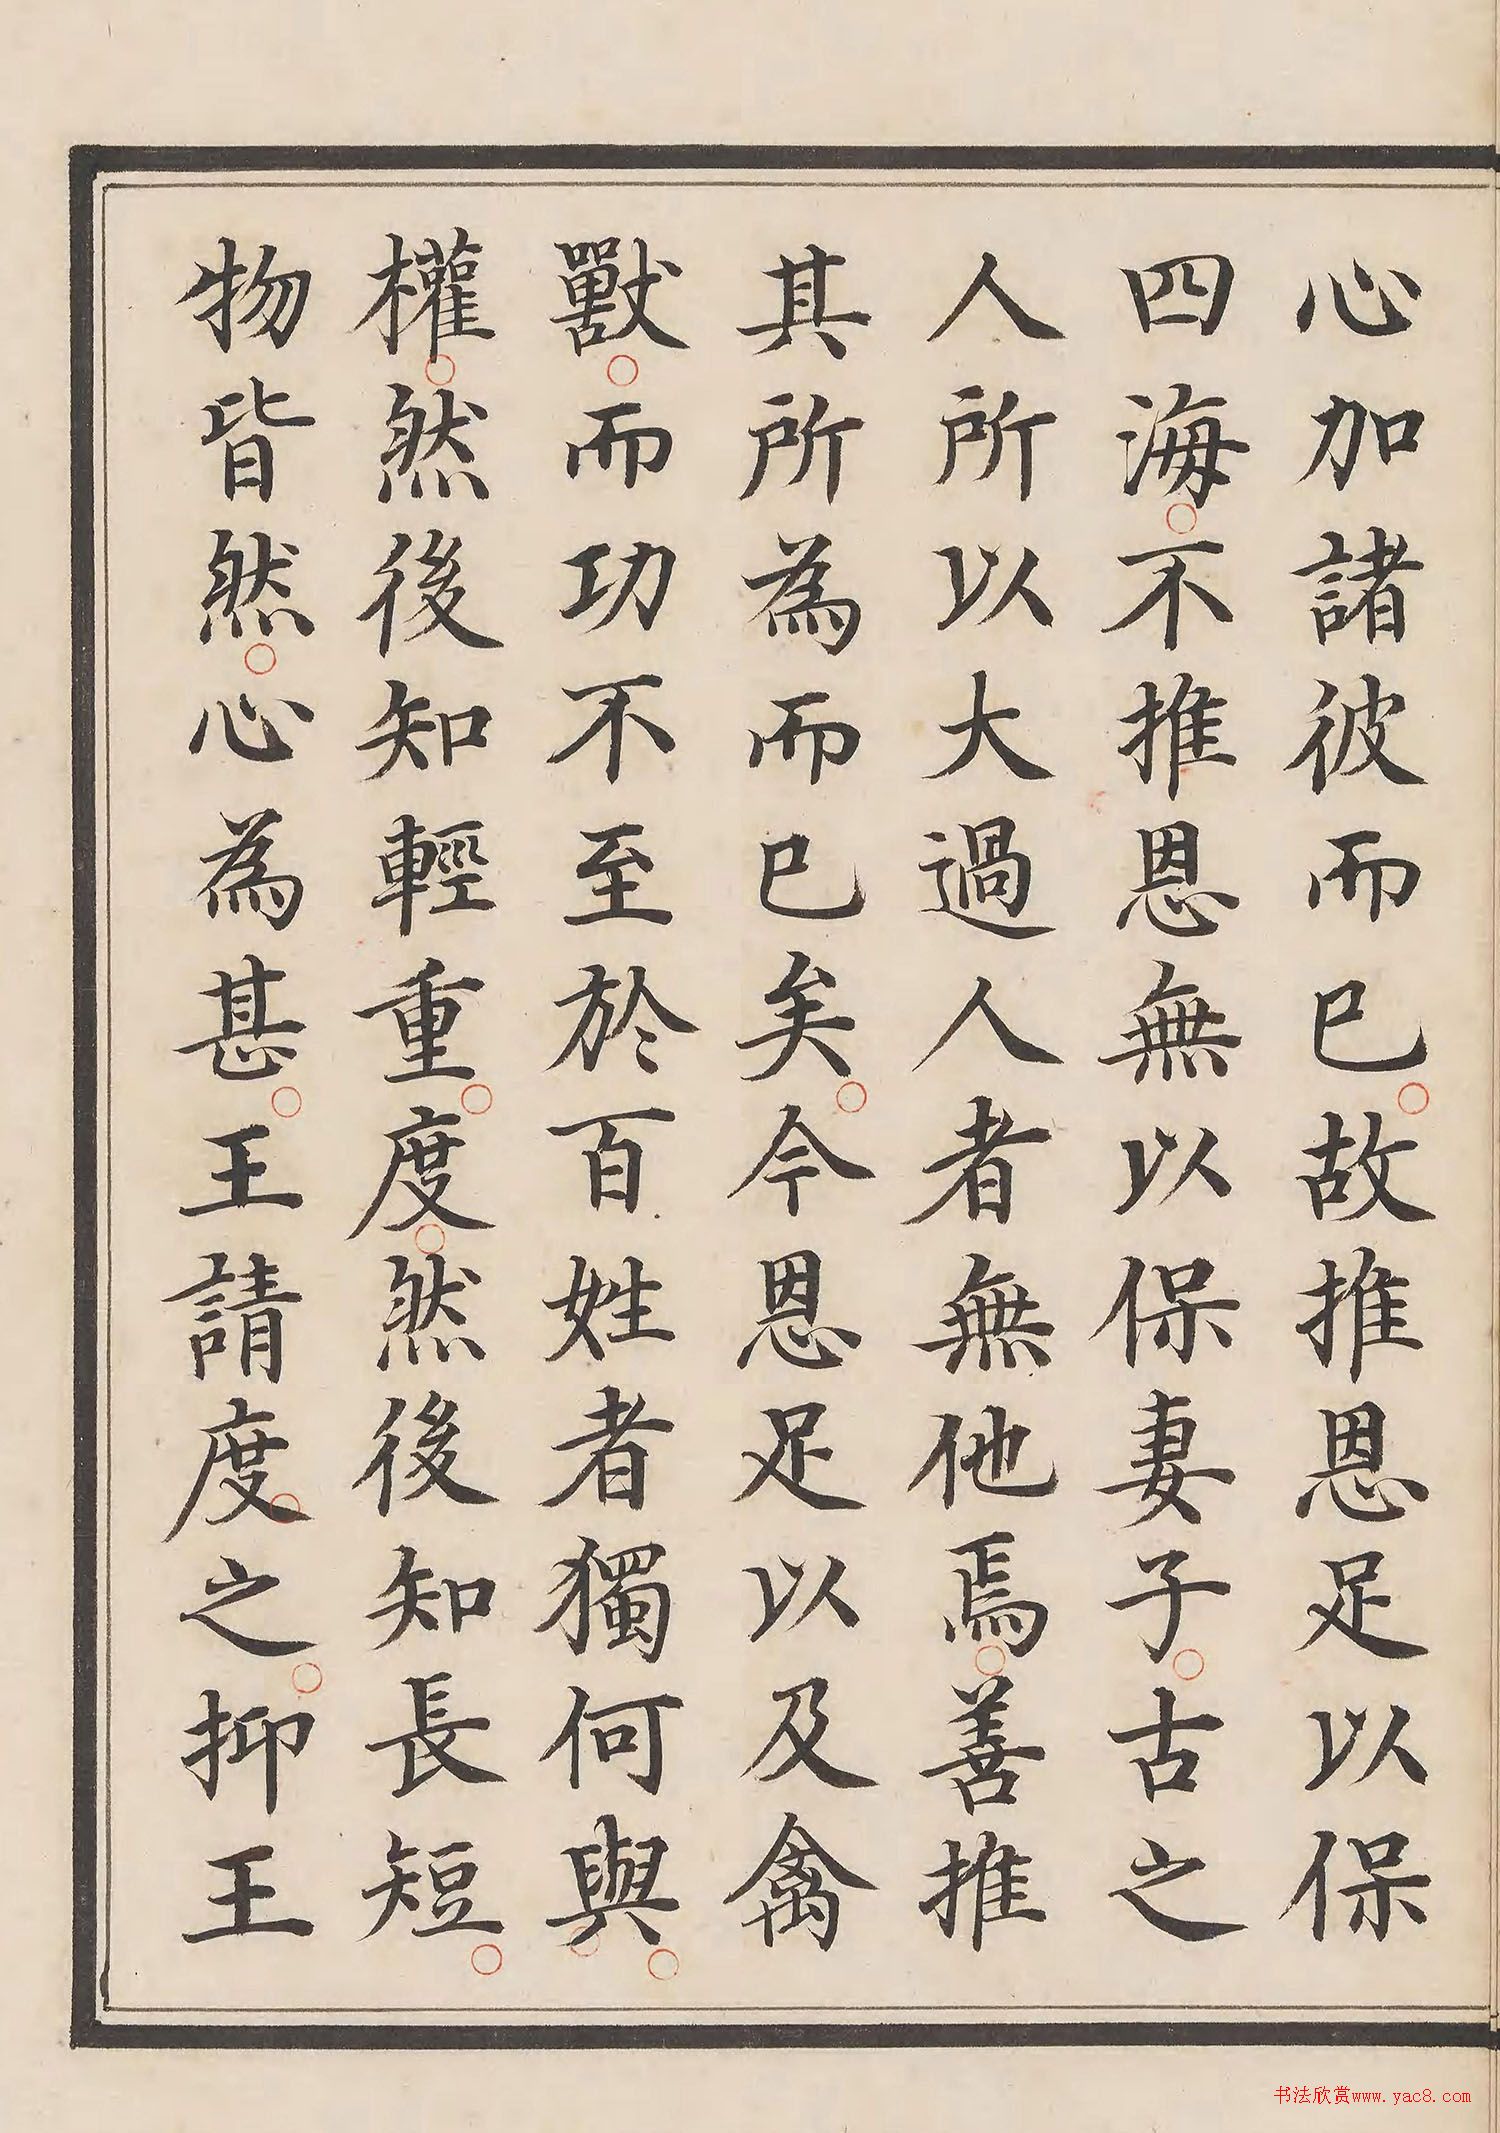 心加諸彼而已○故推恩足以保
四海○不推恩無以保妻子○古之
人所以大過人者無他焉○善推
其所為而已矣○今恩足以及禽
獸○而功不至於百姓者獨何與○
權○然後知輕重○度○然後知長短○
物皆然○心為甚○王請度○之○抑王
书法欣赏www.yac8.com